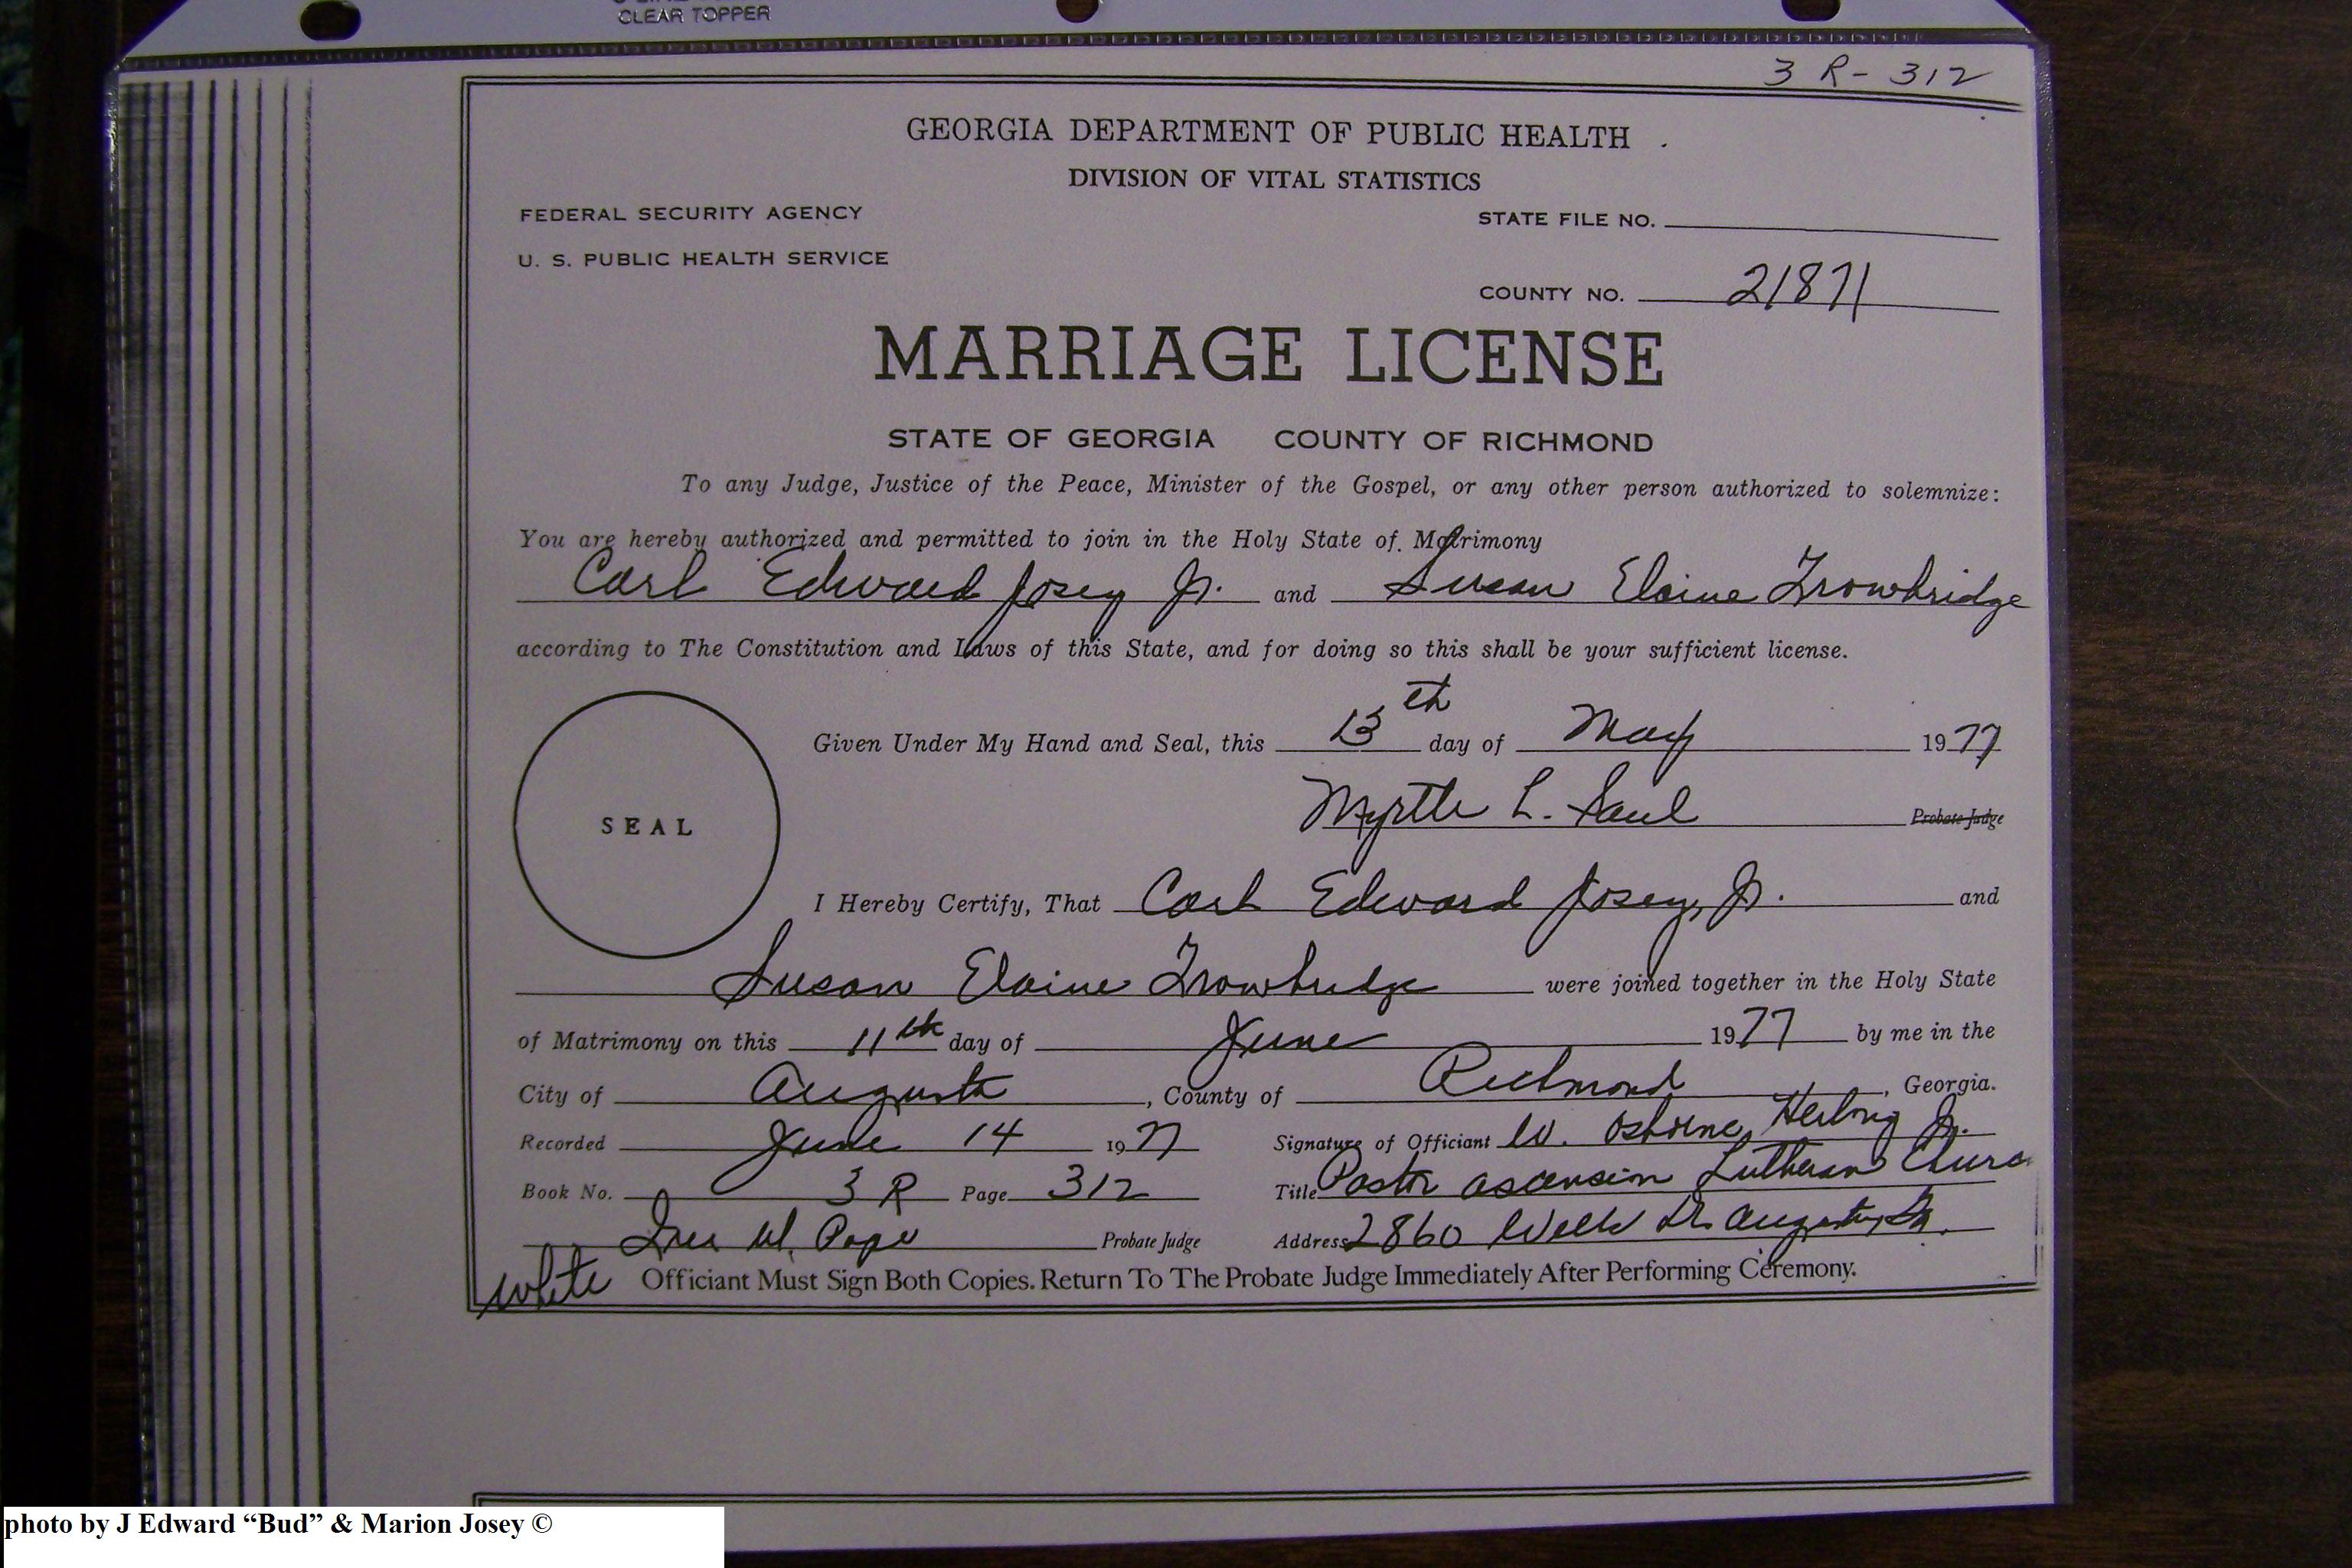 CLEAR TOPPER
3 R - 312
GEORGIA DEPARTMENT OF PUBLIC HEALTH
DIVISION OF VITAL STATISTICS
FEDERAL SECURITY AGENCY
STATE FILE NO.
U. S. PUBLIC HEALTH SERVICE
COUNTY NO. 21871
MARRIAGE LICENSE
STATE OF GEORGIA COUNTY OF RICHMOND
To any Judge, Justice of the Peace, Minister of the Gospel, or any other person authorized to solemnize:
You are hereby authorized and permitted to join in the Holy State of Matrimony
Carl Edward Josey Jr. and Susan Elaine Trowbridge
according to The Constitution and Laws of this State, and for doing so this shall be your sufficient license.
Given Under My Hand and Seal, this 13th day of May 1977
SEAL
Myrtle L. Saul Probate Judge
I Hereby Certify, That Carl Edward Josey, Jr. and
Susan Elaine Trowbridge were joined together in the Holy State
of Matrimony on this 11th day of June 1977 by me in the
City of Augusta, County of Richmond, Georgia.
Recorded June 14 1977 Signature of Officiant W. Osborne Herlong Jr.
Book No. 3 R Page 312 Title Pastor Ascension Lutheran Church
W. Pope Probate Judge Address 2860 Dr. Augusta, Ga.
white Officiant Must Sign Both Copies. Return To The Probate Judge Immediately After Performing Ceremony.
photo by J Edward “Bud” & Marion Josey ©